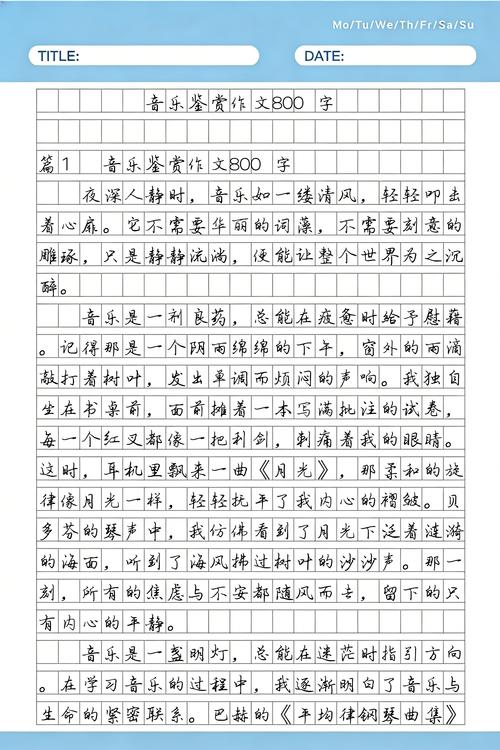 Mo/Tu/We/Th/Fr/Sa/Su
TITLE: DATE:
音乐鉴赏作文800 字
篇1 音乐鉴赏作文800 字
夜深人静时，音乐如一缕清风，轻轻叩击
着心扉。它不需要华丽的词藻，不需要刻意的
雕琢，只是静静流淌，便能让整个世界为之沉
醉。
音乐是一剂良药，总能在疲惫时给予慰藉
。记得那是一个阴雨绵绵的下午，窗外的雨滴
敲打着树叶，发出单调而烦闷的声响。我独自
坐在书桌前，面前摊着一本写满批注的试卷，
每一个红叉都像一把利剑，刺痛着我的眼睛。
这时，耳机里飘来一曲《月光》，那柔和的旋
律像月光一样，轻轻抚平了我内心的褶皱。贝
多芬的琴声中，我仿佛看到了月光下泛着涟漪
的海面，听到了海风拂过树叶的沙沙声。那一
刻，所有的焦虑与不安都随风而去，留下的只
有内心的平静。
音乐是一盏明灯，总能在迷茫时指引方向
。在学习音乐的过程中，我逐渐明白了音乐与
生命的紧密联系。巴赫的《平均律钢琴曲集》